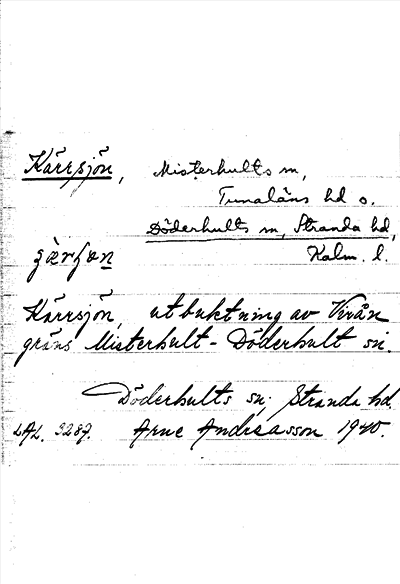 Kärrsjön, Misterhults sn,
Tunaläns hd o.
Döderhults sn, Stranda hd,
Kalm. l.
Kärrsjön, utbuktning av Virån
gräns Misterhult - Döderhult sn.
Döderhults sn. Stranda hd.
LAL. 3287. Arne Andréasson 1940.